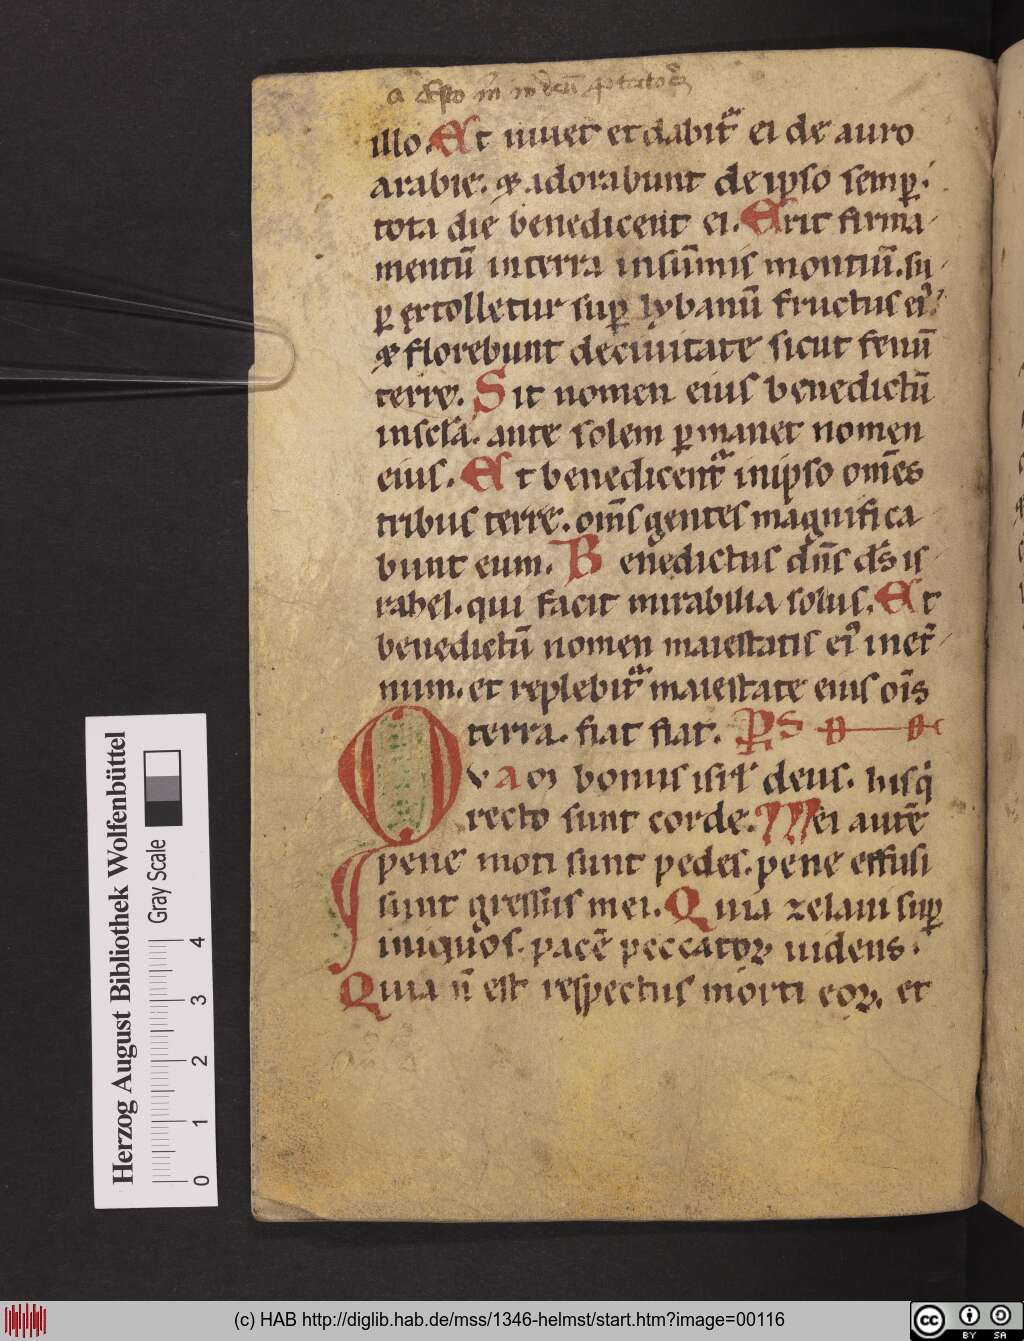 a Esto m in deū
illo. Et uiuet et dabit̃ ei de auro
arabie. & adorabunt de ipso semꝑ.
tota die benedicent ei. Erit firma
mentū interra insūmis montiū. su
ꝑ extolletur suꝑ lybanū fructus ei⁹.
& florebunt deciuitate sicut fenū
terre. Sit nomen eius benedictū
inscła. ante solem ꝑmanet nomen
eius. Et benedicent̃ inipso om̄es
tribus terre. om̄s gentes magnifica
bunt eum. Benedictus dn̄s ds̄ is
rahel. qui facit mirabilia solus. Et
benedictū nomen maiestatis ei⁹ inet̃
num. et replebit̃ maiestate eius oīs
terra. fiat fiat. PS
Quam bonus isrł deus. hisq̇
recto sunt corde. Mei autē
pene moti sunt pedes. pene effusi
sunt gressus mei. Quia zelaui suꝑ
iniquos. pacē peccatoꝝ uidens.
Quia n̄ est respectus morti eoꝝ. et
Herzog August Bibliothek Wolfenbüttel
Gray Scale
0 1 2 3 4
(c) HAB http://diglib.hab.de/mss/1346-helmst/start.htm?image=00116
cc BY SA